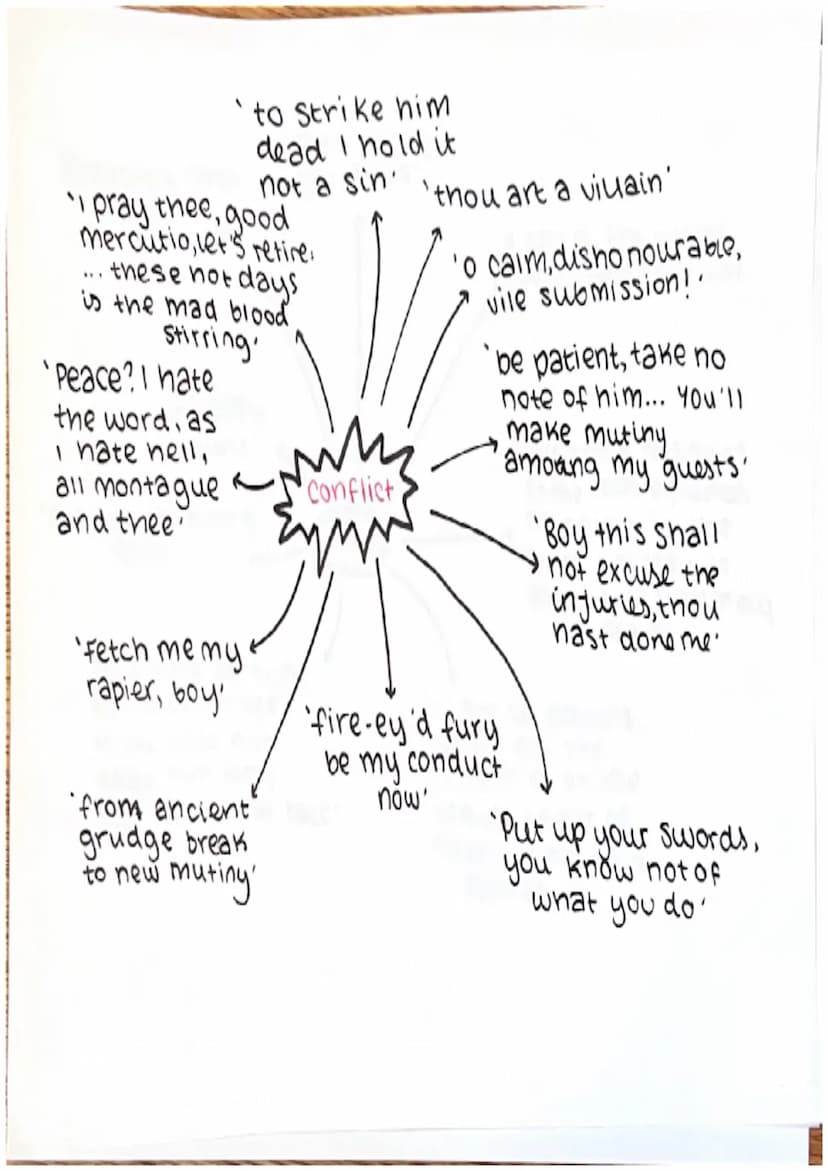 'to strike him
dead I hold it
not a sin'
'thou art a villain'
'I pray thee, good
mercutio, let's retire.
... these hot days
is the mad blood
stirring'
'O calm, dishonourable,
vile submission!'
'Peace? I hate
the word, as
I hate hell,
all montague
and thee'
'be patient, take no
note of him... You'll
make mutiny
amoung my guests'
conflict
'Boy this shall
not excuse the
injuries, thou
hast done me'
'Fetch me my
rapier, boy'
'fire-ey'd fury
be my conduct
now'
'from ancient
grudge break
to new mutiny'
'Put up your swords,
you know not of
what you do'